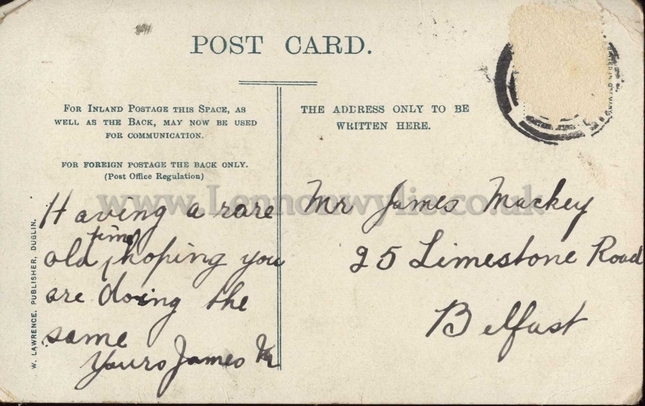 POST CARD.
FOR INLAND POSTAGE THIS SPACE, AS
WELL AS THE BACK, MAY NOW BE USED
FOR COMMUNICATION.
FOR FOREIGN POSTAGE THE BACK ONLY.
(Post Office Regulation)
THE ADDRESS ONLY TO BE
WRITTEN HERE.
www.Lennonwylie.co.uk
Having a rare
time
old ^ hoping you
are doing the
same
Yours James
Mr James Mackey
25 Limestone Road
Belfast
W. LAWRENCE, PUBLISHER, DUBLIN.